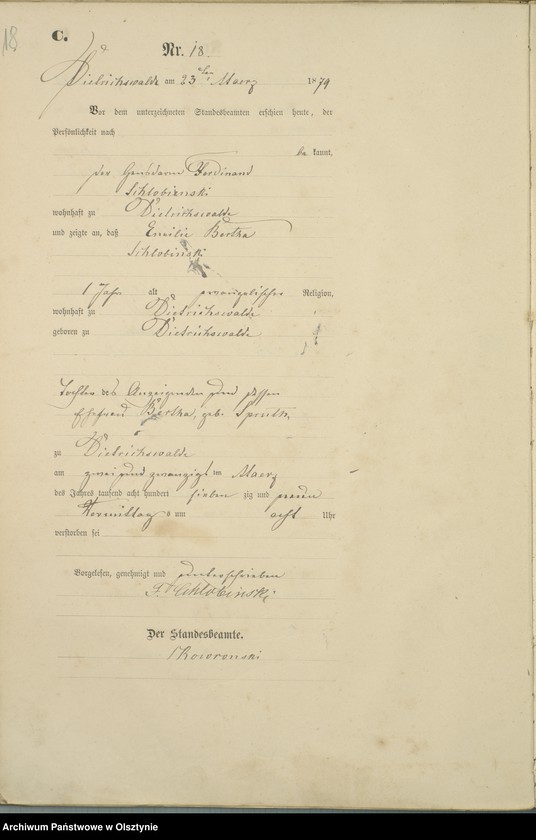 18
C.
Nr. 18.
Dietrichswalde am 23ten Maerz 1879
Vor dem unterzeichneten Standesbeamten erschien heute, der
Persönlichkeit nach
be kannt,
der Gensdarm Ferdinand
Schlobinski
wohnhaft zu Dietrichswalde
und zeigte an, daß Emilie Bertha
Schlobinski
1 Jahr alt evangelischer Religion,
wohnhaft zu Dietrichswalde
geboren zu Dietrichswalde
Tochter des Anzeigenden und dessen
Ehefrau Bertha, geb.
zu Dietrichswalde
am zwei und zwanzigsten Maerz
des Jahres tausend acht hundert sieben zig und neun
Vormittag s um acht Uhr
verstorben sei
Vorgelesen, genehmigt und unterschrieben
F. Schlobinski
Der Standesbeamte.
Skowronski
Archiwum Państwowe w Olsztynie